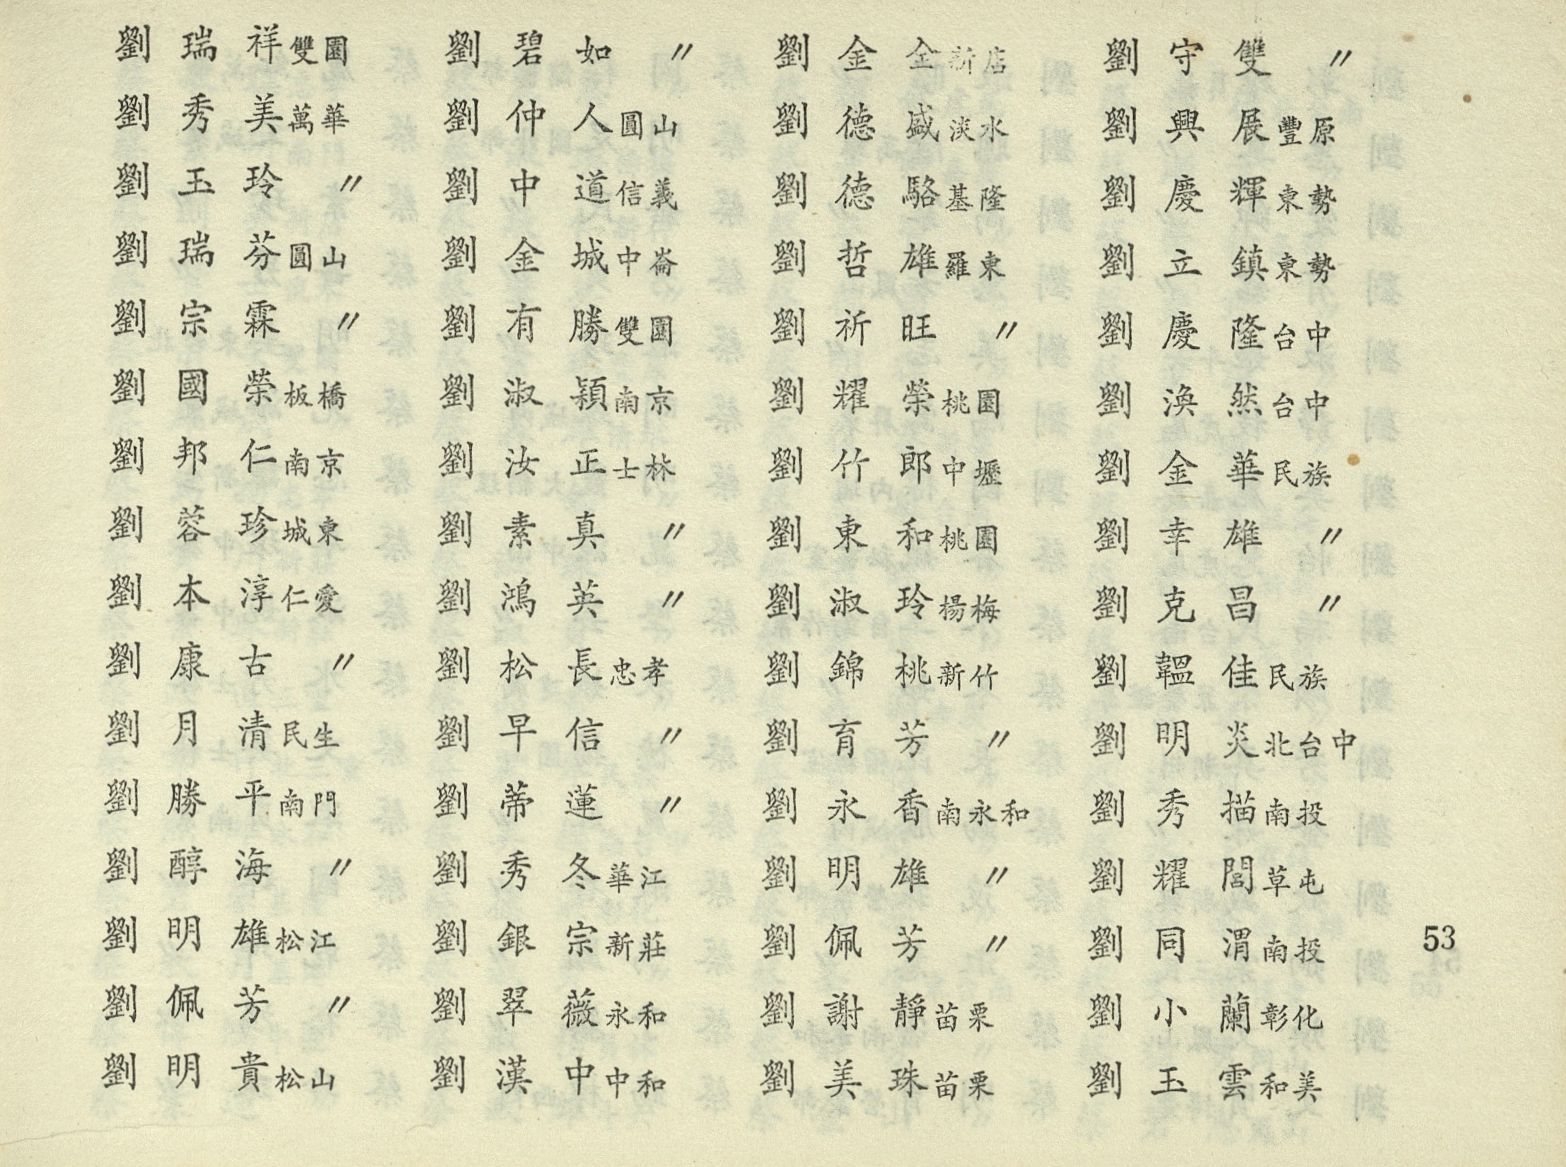 劉瑞祥雙園
劉秀美萬華
劉玉玲 〃
劉瑞芬圓山
劉宗霖 〃
劉國榮板橋
劉邦仁南京
劉蓉珍城東
劉本淳仁愛
劉康古 〃
劉月清民生
劉勝平南門
劉醇海 〃
劉明雄松江
劉佩芳 〃
劉明貴松山
劉碧如 〃
劉仲人圓山
劉中道信義
劉金城中崙
劉有勝雙園
劉淑穎南京
劉汝正士林
劉素真 〃
劉鴻英 〃
劉松長忠孝
劉早信 〃
劉蒂蓮 〃
劉秀冬華江
劉銀宗新莊
劉翠薇永和
劉漢中中和
劉金全新店
劉德盛淡水
劉德駱基隆
劉哲雄羅東
劉祈旺 〃
劉耀榮桃園
劉竹郎中壢
劉東和桃園
劉淑玲楊梅
劉錦桃新竹
劉育芳 〃
劉永香南永和
劉明雄 〃
劉佩芳 〃
劉謝靜苗栗
劉美珠苗栗
劉守雙 〃
劉興展豐原
劉慶輝東勢
劉立鎮東勢
劉慶隆台中
劉渙然台中
劉金華民族
劉幸雄 〃
劉克昌 〃
劉韞佳民族
劉明炎北台中
劉秀描南投
劉耀閭草屯
劉同渭南投
劉小蘭彰化
劉玉雲和美
53